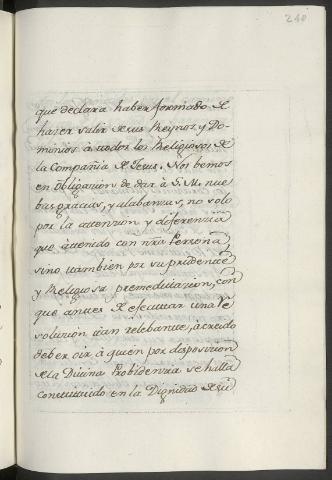 240
que declara haber formado de
hazer salir de sus Reynos, y Do-
minios à todos los Religiosos de
la Compañia de Jesus. Nos bemos
en obligazion de dar à S. M. nue
bas grazias, y alabanzas, no solo
por la attenzion y diferenzia
que à tenido con nra Persona,
sino tambien por su prudente
y Religiosa premeditazion, con
que antes de efectuar una re
soluzion tàn relebante, à creido
deber oir à quien por disposizion
de la Divina Probidenzia se halla
constituido en la Dignidad de su